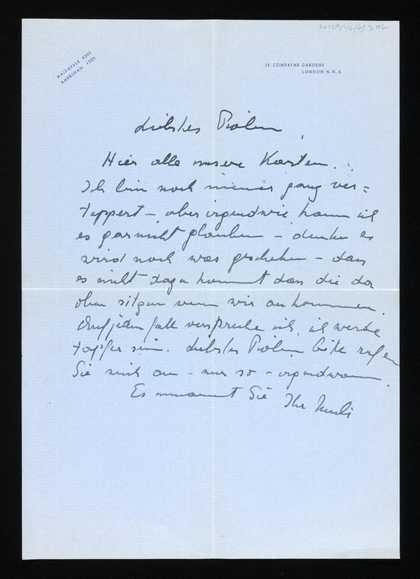 MAIDA VALE
52 COMPAYNE GARDENS
LONDON N.W.6
Liebstes
Hier alle unsere Karten.
Ich bin noch immer ganz ver=
teppert – aber irgendwie kann ich
es gar nicht glauben – denke es
wird noch was geschehen – dass
es nicht dazu kommt dass die da
oben sitzen wenn wir ankommen.
Auf jeden Fall verspreche ich, ich werde
tapfer sein. Liebstes bitte rufen
Sie mich an – nur so – irgendwann.
Es umarmt Sie Ihr